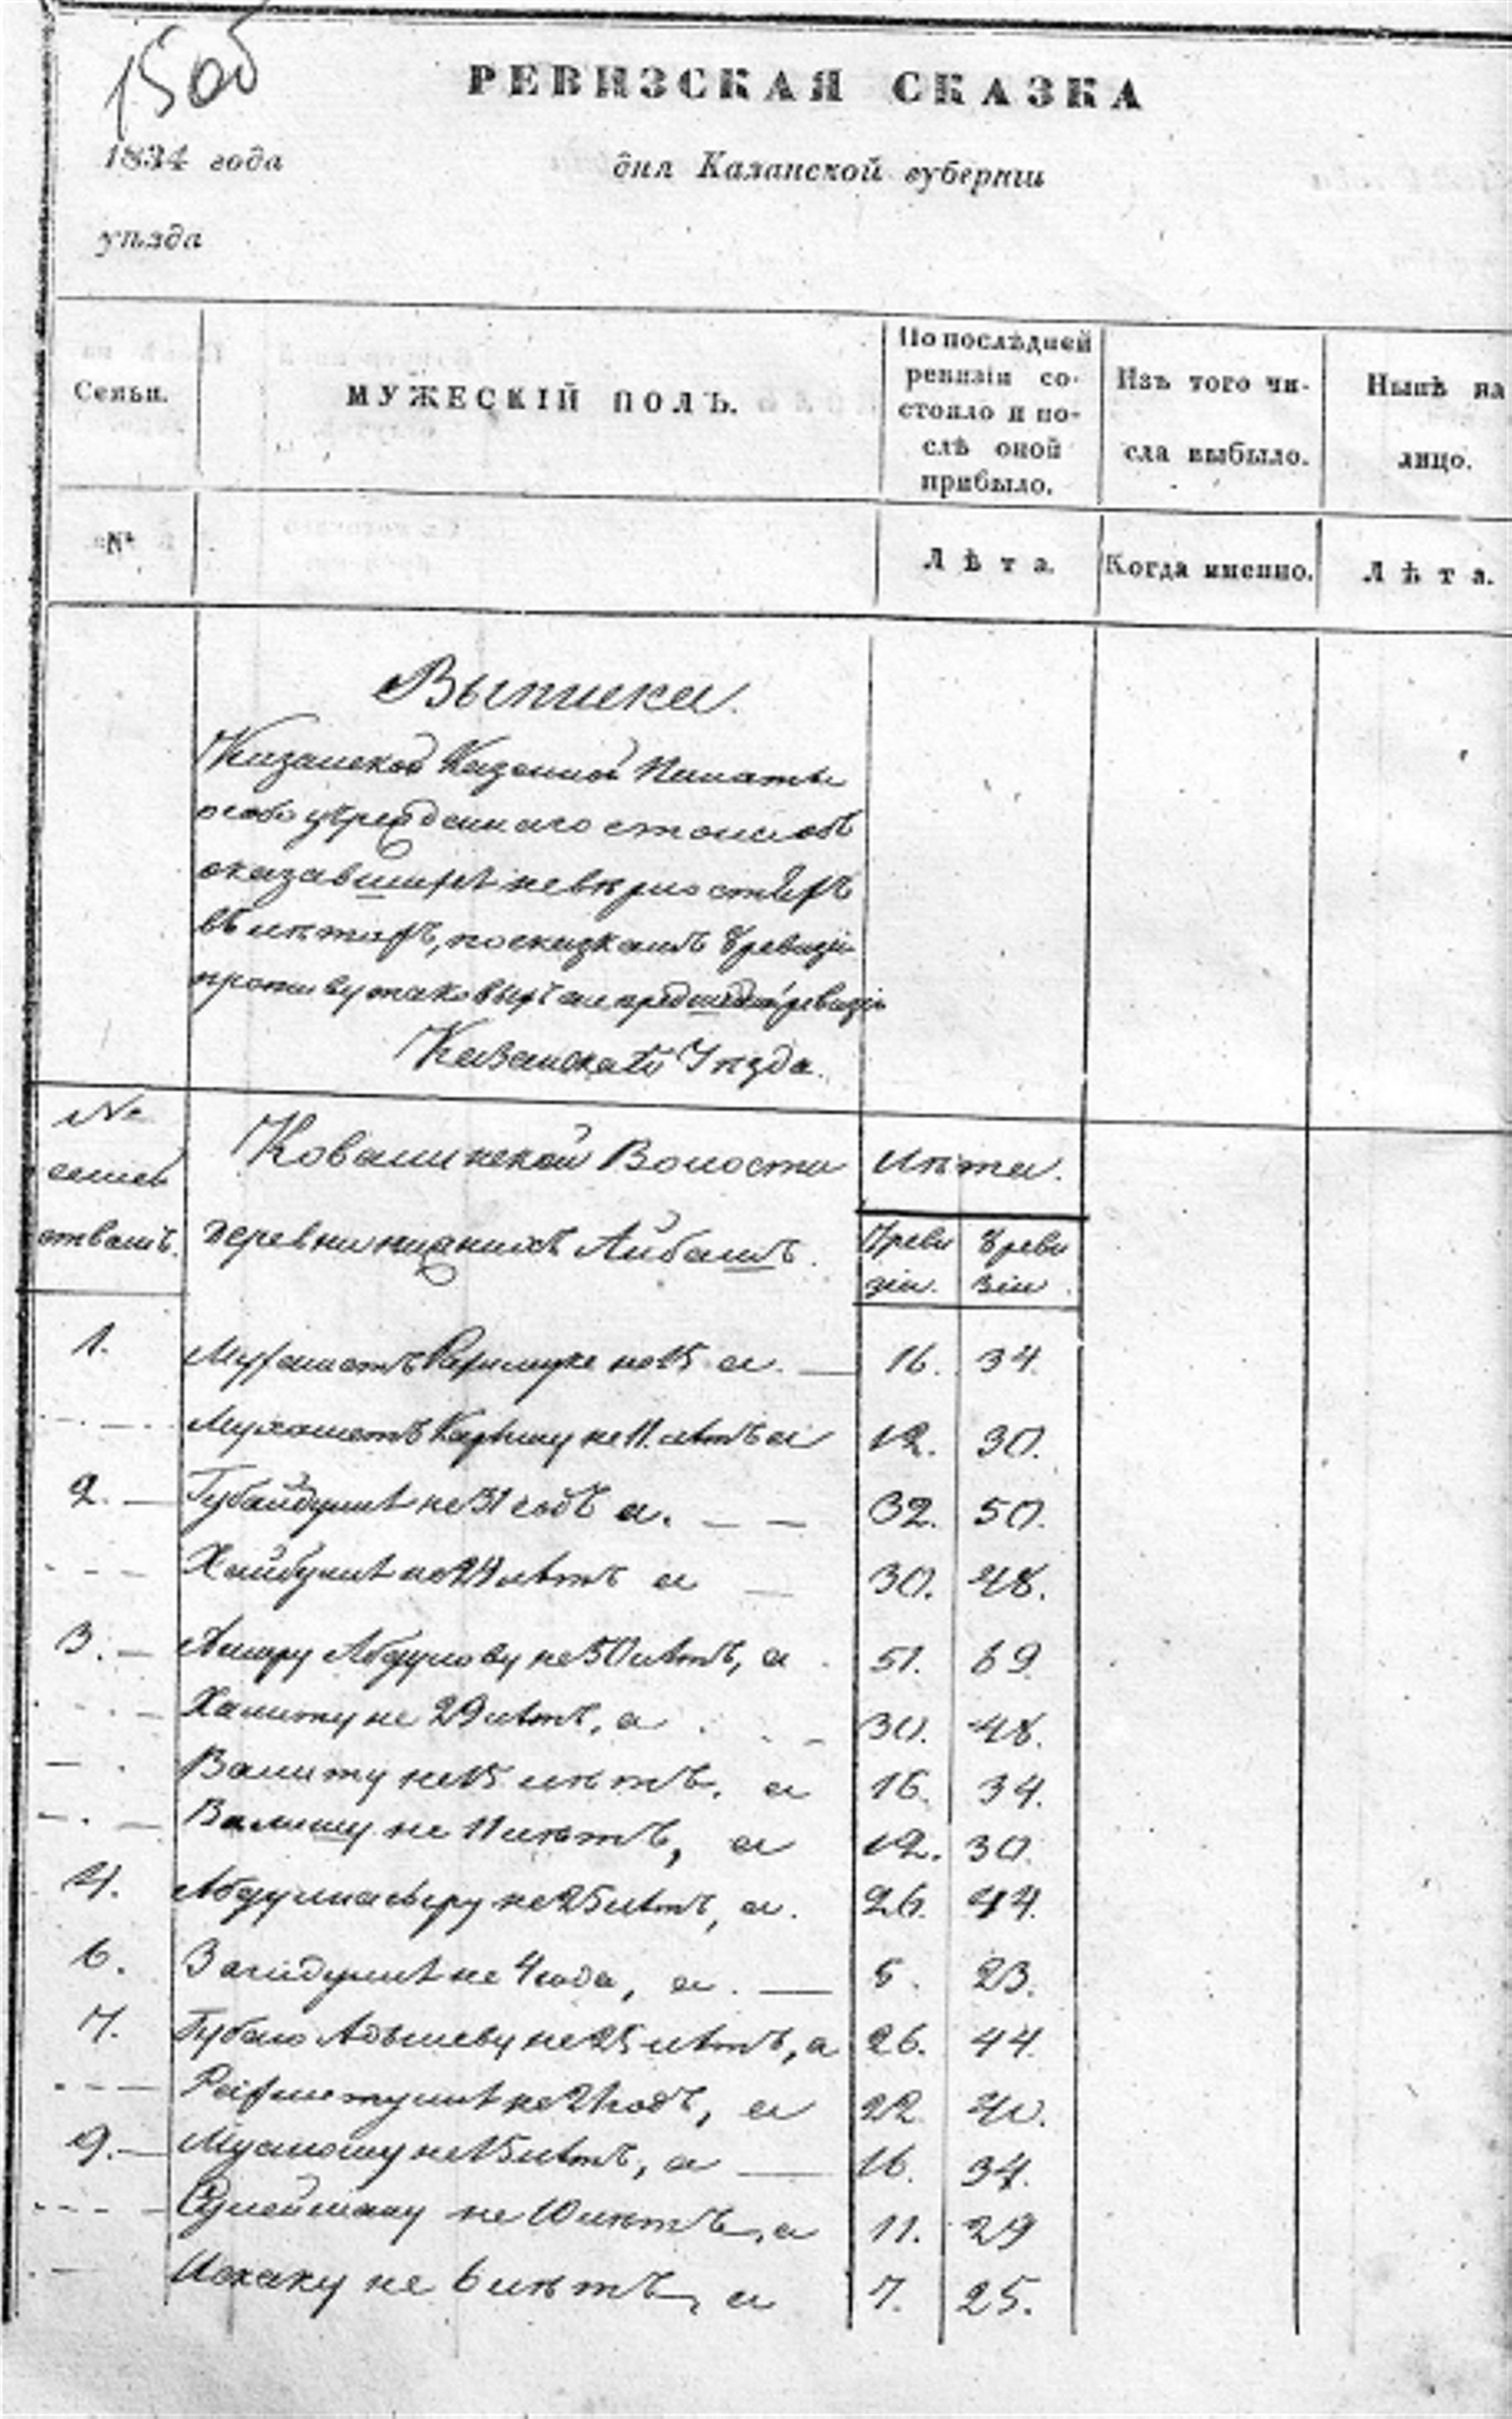 150об
РЕВИЗСКАЯ СКАЗКА
1834 года
дня Казанской губерніи
уѣзда
Семьи.
МУЖЕСКІЙ ПОЛЪ.
По послѣдней
ревизіи со-
стояло и по-
слѣ оной
прибыло.
Изъ того чи-
сла выбыло.
Нынѣ на
лицо.
№
Лѣта.
Когда именно.
Лѣта.
Выписка.
Казанской Казенной Палаты
особо учрежденнаго стола объ
оказавшихся неверностяхъ
въ летахъ, по сказкамъ 8 ревизіи
противу таковыхъ же предшедшей ревизіи
Казанскаго Уѣзда.
№
семей
ствамъ.
Ковалинской Волости
лѣта.
деревни нижнихъ Айбашъ.
7 реви
зіи.
8 реви
зіи.
1. Мухаметъ Рахимуле не 15 а. — 16. 34.
Мухаметъ Кариму не 11 летъ а 12. 30.
2. — Губайдулле не 31 годъ а. — — 32. 50.
Хайбулле не 29 летъ а — 30. 48.
3. — Амиру Абдулову не 50 летъ, а 51. 69.
Халиту не 29 летъ, а 30. 48.
Валиту не 15 лѣтъ, а 16. 34.
Валишу не 11 лѣтъ, а 12. 30.
4. Абдулнасыру не 25 летъ, а. 26. 44.
6. Загидулле не 4 года, а. — 5. 23.
7. Губаю Адышеву не 25 летъ, а 26. 44.
не 21 годъ, а 22. 40.
9. — не 15 летъ, а — 16. 34.
Сулейману не 10 лѣтъ, а 11. 29
Исхаку не 6 лѣтъ, а 7. 25.